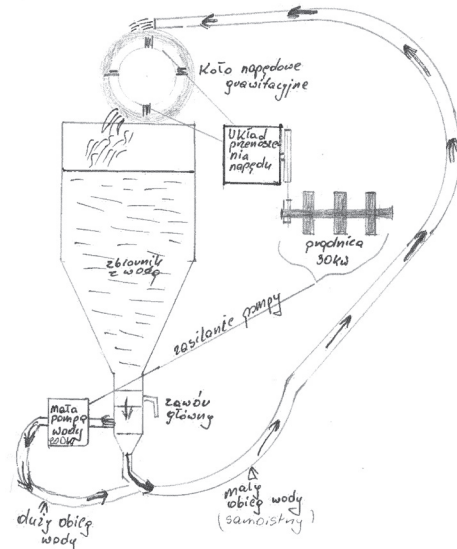 Koło napędowe
grawitacyjne
Układ
przenosze
nia
napędu
prądnica
30kW
zbiornik
z wodą
zasilanie pompy
zawór
główny
mała
pompa
wody
duży obieg
wody
mały
obieg wody
(samoistny)